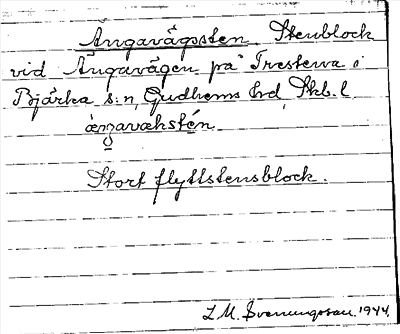 Ängavägssten Stenblock
vid Ängavägen på Trestena i
Bjärka s:n, Gudhems hd, Skb. l
æŋavækstén
Stort flyttstensblock.
L.M. Svenungsson. 1944.